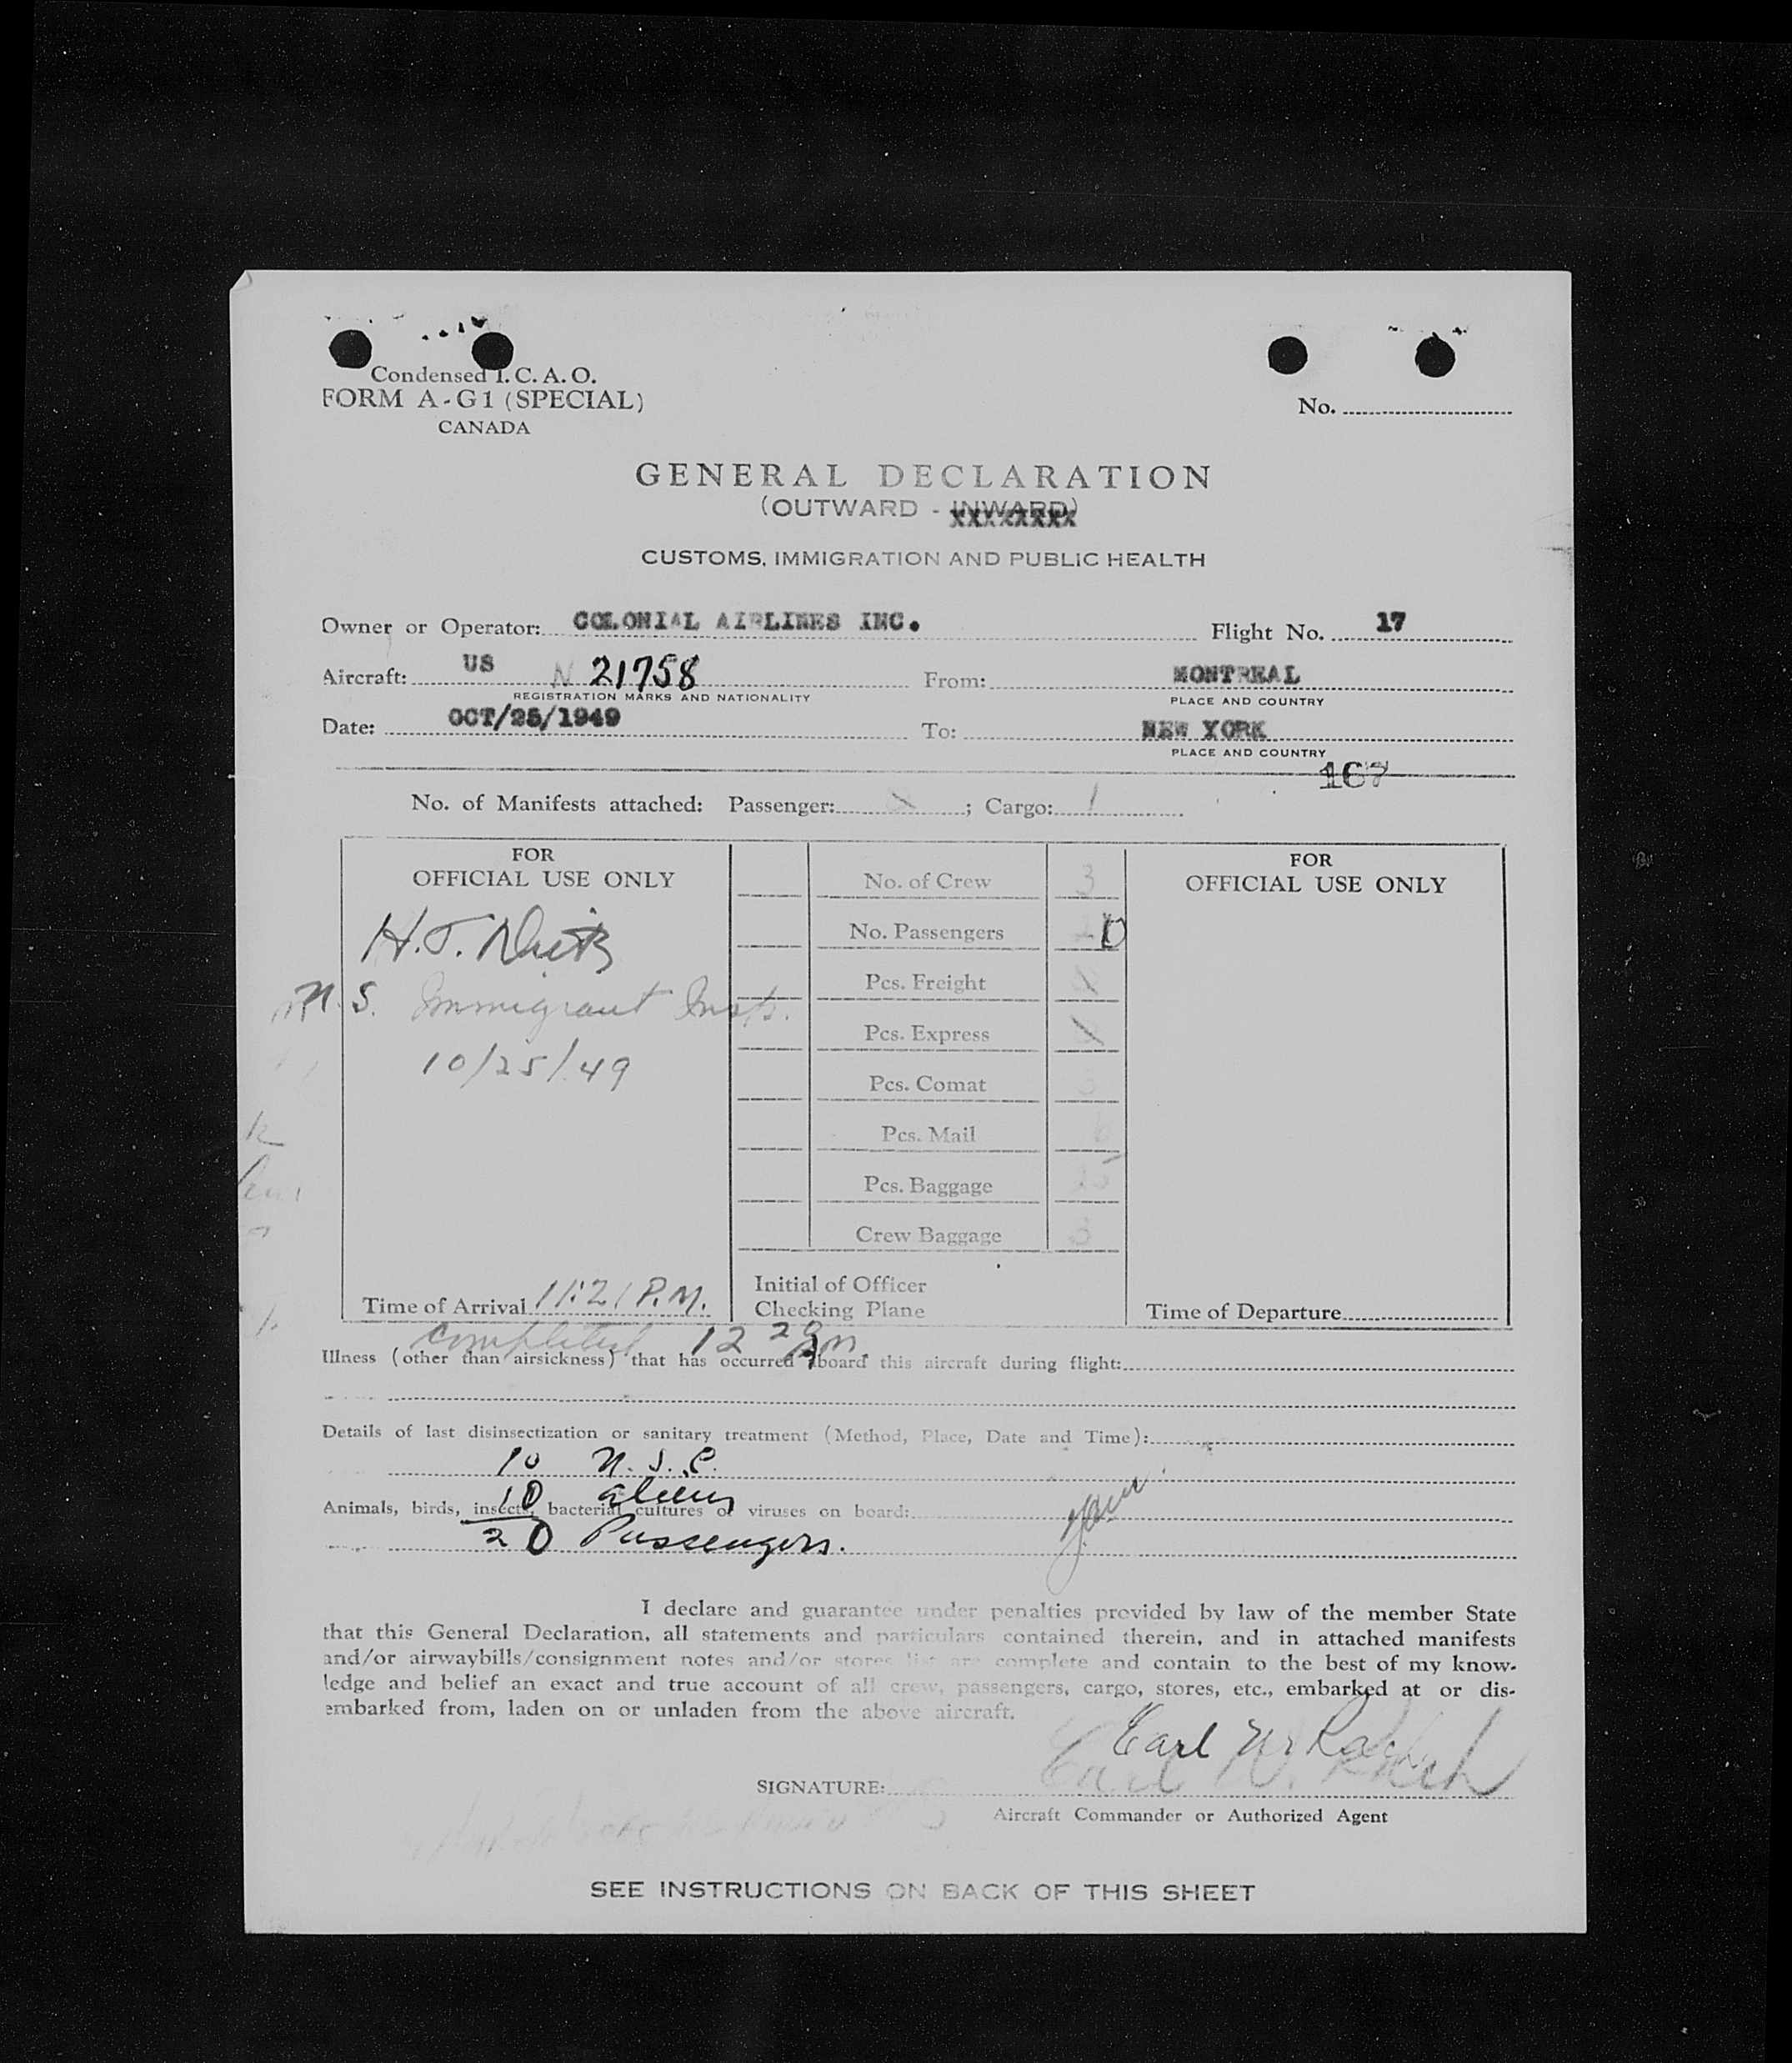 Condensed I. C. A. O.
FORM A-G1 (SPECIAL)
CANADA
No.
GENERAL DECLARATION
(OUTWARD - INWARD)
XXXXXXXX
CUSTOMS, IMMIGRATION AND PUBLIC HEALTH
Owner or Operator: COLONIAL AIRLINES INC. Flight No. 17
Aircraft: US N 21758 From: MONTREAL
REGISTRATION MARKS AND NATIONALITY PLACE AND COUNTRY
Date: OCT/25/1949 To: NEW YORK
PLACE AND COUNTRY
167
No. of Manifests attached: Passenger: ; Cargo: 1
FOR
OFFICIAL USE ONLY
H. J.
S. Immigrant Insp.
10/25/49
Time of Arrival 11:21 P.M.
No. of Crew 3
No. Passengers
Pcs. Freight
Pcs. Express
Pcs. Comat
Pcs. Mail
Pcs. Baggage
Crew Baggage 3
Initial of Officer
Checking Plane
FOR
OFFICIAL USE ONLY
Time of Departure
completed 12
Illness (other than airsickness) that has occurred aboard this aircraft during flight:
Details of last disinsectization or sanitary treatment (Method, Place, Date and Time):
10 U. S. C.
10 aliens
Animals, birds, insects, bacterial cultures or viruses on board:
20 Passengers.
I declare and guarantee under penalties provided by law of the member State
that this General Declaration, all statements and particulars contained therein, and in attached manifests
and/or airwaybills/consignment notes and/or stores list are complete and contain to the best of my know-
ledge and belief an exact and true account of all crew, passengers, cargo, stores, etc., embarked at or dis-
embarked from, laden on or unladen from the above aircraft.
Earl W
SIGNATURE: Earl W.
Aircraft Commander or Authorized Agent
SEE INSTRUCTIONS ON BACK OF THIS SHEET